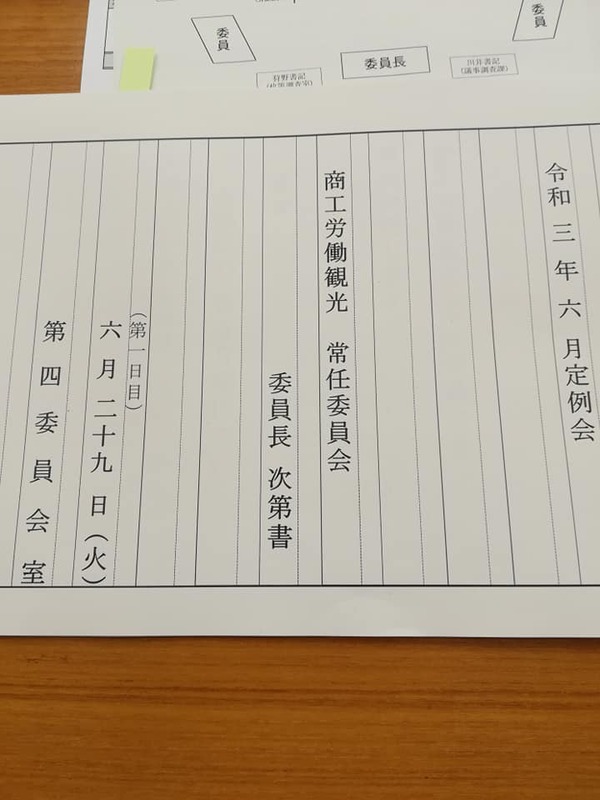 委員
委員長
委員
狩野書記
川井書記
(議事調査課)
令和三年六月定例会
商工労働観光 常任委員会
委員長 次第書
(第一日目)
六月二十九日(火)
第四委員会室